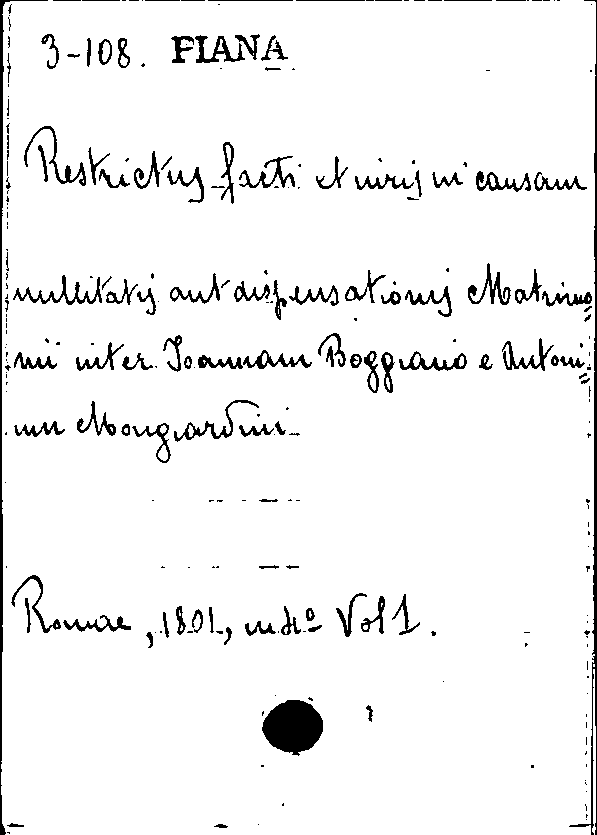 3-108. PIANA
Restrictus facti et iuris in causam
nullitatis aut dispensationis Matrimo=
nii inter Joannam Boggiano e Antoni=
um Mongiardini
Romae, 1801, in 4º Vol 1.